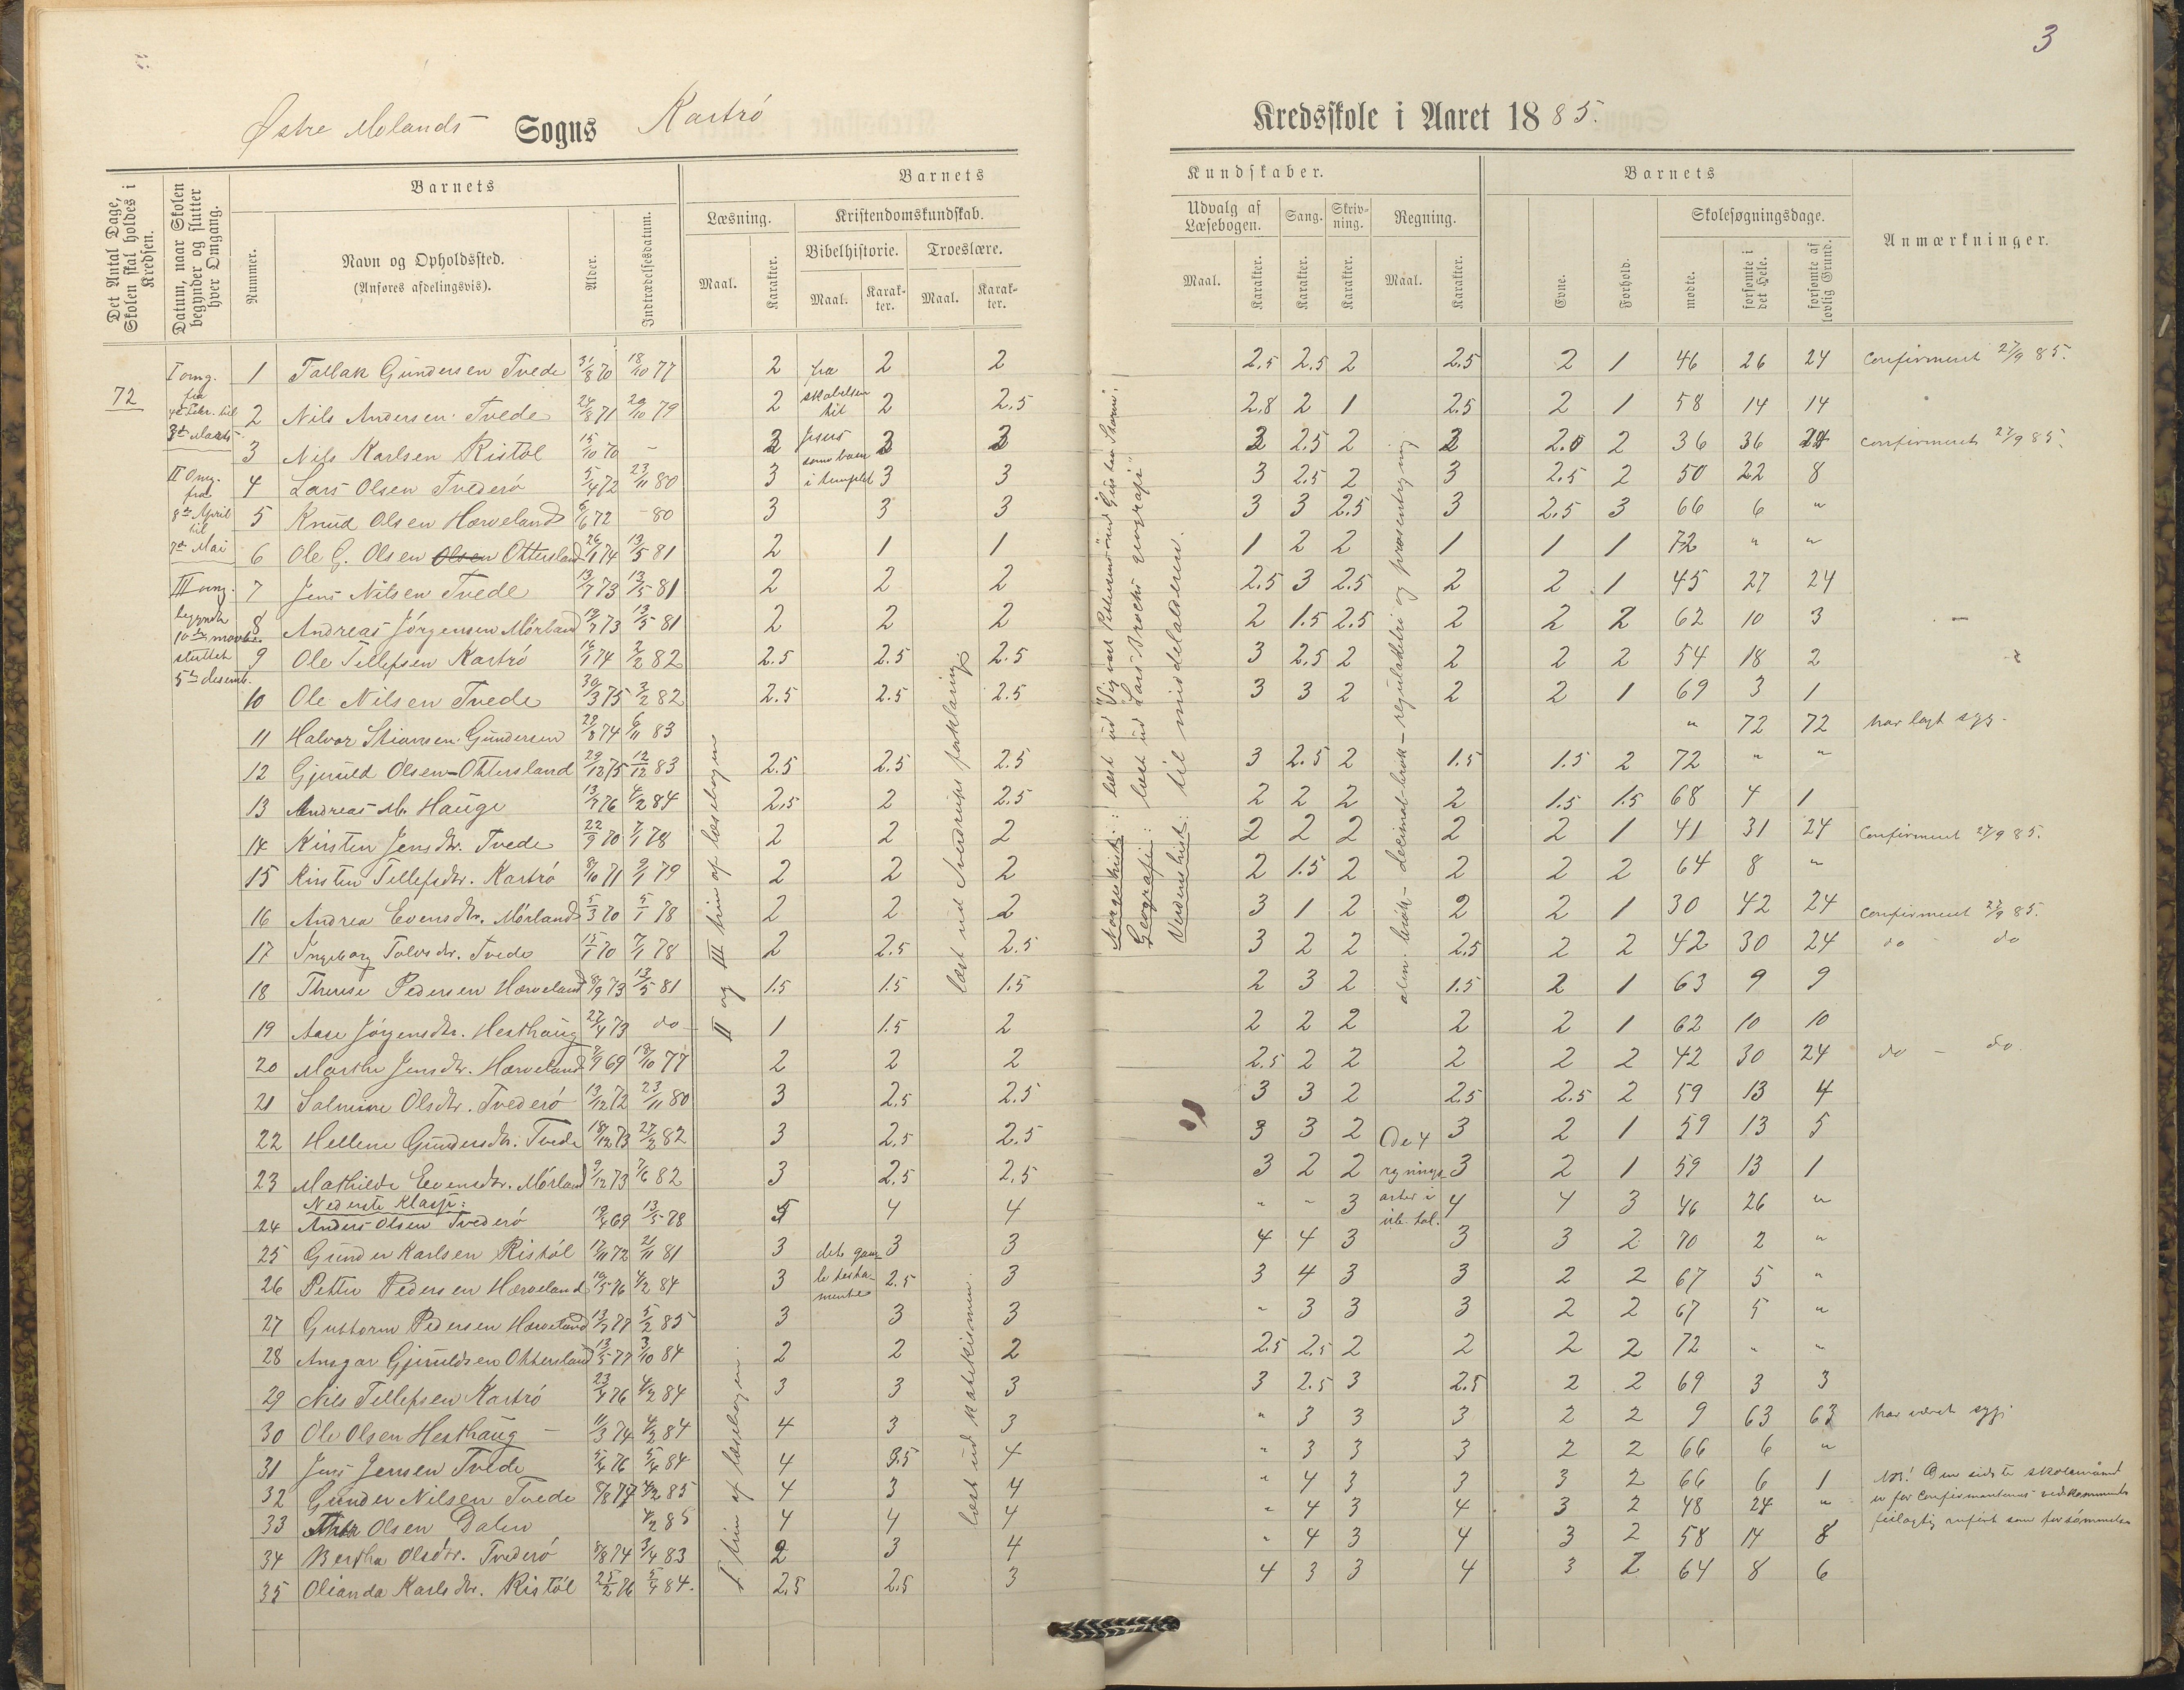 3
Østre Molands Sogns Kaströ Kredsskole i Aaret 1885.
Det Antal Dage, Skolen skal holdes i Kredsen.
Datum, naar Skolen begynder og slutter hver Omgang.
Barnets
Nummer.
Navn og Opholdssted.
(Anføres afdelingsvis).
Alder.
Indtrædelsesdatum.
Barnets Kundskaber.
Læsning.
Kristendomskundskab.
Bibelhistorie. Troeslære.
Maal. Karakter. Maal. Karakter. Maal. Karakter.
Udvalg af Læsebogen.
Sang. Skrivning. Regning.
Maal. Karakter. Karakter. Karakter. Maal. Karakter.
Barnets
Evne. Forhold.
Skolesøgningsdage.
mødte. forsømte i det Hele. forsømte af lovlig Grund.
Anmærkninger.
72
I omg. fra 4de Febr. til 3die Marts
II Omg. fra 8de April til 7de Mai
III omg. begyndte 10de novbr. sluttet 5te desemb.
1 Tallak Gundersen Tvede 31/8 70 18/10 77 2 2 2 2.5 2.5 2 2.5 2 1 46 26 24 Confirmeret 27/9 85.
2 Nils Andersen Tvede 24/8 71 20/10 79 2 2 2.5 2.8 2 1 2.5 2 1 58 14 14
3 Nils Karlsen Ristöl 15/10 70 - 3 3 3 3 2.5 2 3 2.5 2 36 36 24 confirmeret 27/9 85.
4 Lars Olsen Tvederö 5/4 72 23/11 80 3 3 3 3 2.5 2 3 2.5 2 50 22 8
5 Knud Olsen Hærveland 6/6 72 - 80 3 3 3 3 3 2.5 3 2.5 3 66 6 "
6 Ole G. Olsen Ottersland 26/1 74 13/5 81 2 1 1 1 2 2 1 1 1 72 " "
7 Jens Nilsen Tvede 13/7 73 13/5 81 2 2 2 2.5 3 2.5 2 2 1 45 27 24
8 Andreas Jörgensen Mörland 19/7 73 13/5 81 2 2 2 2 1.5 2.5 2 2 2 62 10 3
9 Ole Tellefsen Kaströ 16/1 74 2/2 82 2.5 2.5 2.5 3 2.5 2 2 2 2 54 18 2
10 Ole Nilsen Tvede 30/3 75 2/2 82 2.5 2.5 2.5 3 3 2 2 2 1 69 3 1
11 Halvor Stiansen Gundersen 28/8 74 6/11 83 " 72 72 har lagt syg.
12 Gjeruld Olsen Ottersland 29/12 75 12/12 83 2.5 2.5 2.5 3 2.5 2 1.5 1.5 2 72 " "
13 Andreas M. Hauge 13/7 76 4/2 84 2.5 2 2.5 2 2 2 2 1.5 1.5 68 4 1
14 Kirsten Jensdtr. Tvede 22/9 70 7/1 78 2 2 2 2 2 2 2 2 1 41 31 24 Confirmeret 27/9 85.
15 Kirsten Tellefsdtr. Kaströ 8/10 71 9/1 79 2 2 2 2 1.5 2 2 2 2 64 8 "
16 Andrea Evensdtr. Mörland 5/3 70 5/1 78 2 2 2 3 1 2 2 2 1 30 42 24 confirmeret 27/9 85.
17 Ingeborg Talvsdtr. Tvede 15/1 70 7/1 78 2 2.5 2.5 3 2 2 2.5 2 2 42 30 24 do do
18 Therese Pedersen Hærveland 8/9 73 13/5 81 1.5 1.5 1.5 2 3 2 1.5 2 1 63 9 9
19 Aase Jörgensdtr. Hesthaug 27/4 73 do 1 1.5 2 2 2 2 2 2 1 62 10 10
20 Marthe Jensdtr. Hærveland 9/9 69 18/10 77 2 2 2 2.5 2 2 2 2 2 42 30 24 do - do.
21 Salmine Olsdtr. Tvederö 13/12 72 23/11 80 3 2.5 2.5 3 3 2 2.5 2.5 2 59 13 4
22 Hellene Gundersdtr. Tvede 18/12 73 27/2 82 3 2.5 2.5 3 3 2 3 2 1 59 13 5
23 Mathilde Evensdtr. Mörland 9/12 73 7/6 82 3 2.5 2.5 3 2 2 3 2 1 59 13 1
Nederste Klasse:
24 Anders Olsen Tvederö 19/4 69 13/5 78 5 4 4 " " 3 4 4 3 46 26 "
25 Gunder Karlsen Ristöl 17/11 72 21/11 81 3 3 3 4 4 3 3 3 2 70 2 "
26 Petter Pedersen Hærveland 10/5 76 4/2 84 3 2.5 3 3 4 3 3 2 2 67 5 "
27 Guttorm Pedersen Hærveland 13/7 77 5/2 85 3 3 3 " 3 3 3 2 2 67 5 "
28 Ansgar Gjeruldsen Ottersland 13/5 77 3/10 84 2 2 2 2.5 2.5 2 2 2 2 72 " "
29 Nils Tellefsen Kaströ 23/4 76 4/2 84 3 3 3 3 2.5 3 2.5 2 2 69 3 3
30 Ole Olsen Hesthaug 11/3 74 4/2 84 4 3 3 " 3 3 3 2 2 9 63 63 har været syg.
31 Jens Jensen Tvede 5/4 76 5/4 84 4 3.5 4 " 3 3 3 2 2 66 6 "
32 Gunder Nilsen Tvede 5/8 77 4/2 85 4 3 4 " 4 3 3 3 2 66 6 1
33 Olsen Dalen 4/2 85 4 4 4 " 4 3 4 3 2 48 24 "
34 Bertha Olsdtr. Tvederö 8/8 74 3/4 83 2 3 4 " 4 3 4 3 2 58 14 8
35 Olianda Karlsdtr. Ristöl 25/2 76 5/4 84. 2.5 2.5 3 4 3 3 4 3 2 64 8 6
fra skabelsen til Jesus som barn i templet
det gamle testamente
II og III trin af læsebogen
I trin af læsebogen.
læst ud Sverdrups forklaring
læst ud katekismen.
Norgeshist.: læst ud
Geografi: læst ud Lars geografi
Verdenshist.: til middelalderen.
alm. brök- decimal-brök- regulaDetri og prosentregning
De 4 regningsarter i ube. tal.
NB! Den sidste skolemåned er for Confirmanternes vedkommende feilagtig anført som forsømmelse